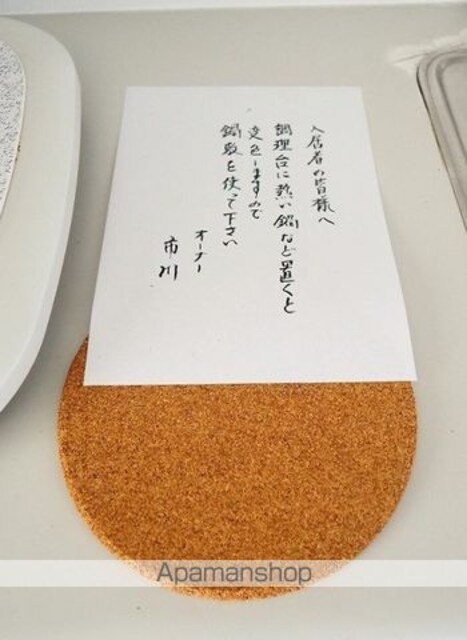 入居者の皆様へ
調理台に熱い鍋など置くと
変色しますので
鍋敷を使って下さい
オーナー
市川
Apamanshop